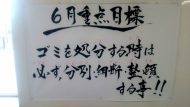 6月重点目標
ゴミを処分する時は
必ず、分別・細断・整頓
する事!!